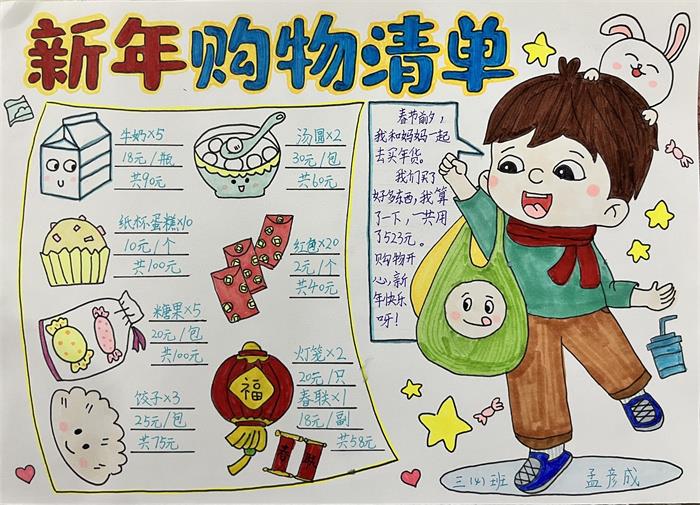 新年购物清单
牛奶×5
18元/瓶
共90元
汤圆×2
30元/包
共60元
纸杯蛋糕×10
10元/个
共100元
红包×20
2元/个
共40元
糖果×5
20元/包
共100元
灯笼×2
20元/只
春联×1
18元/副
共58元
福
春
饺子×3
25元/包
共75元
春节前夕，
我和妈妈一起
去买年货。
我们买了
好多东西，我算
了一下，一共用
了523元。
购物开
心，新
年快乐
呀！
三(4)班 孟彦成